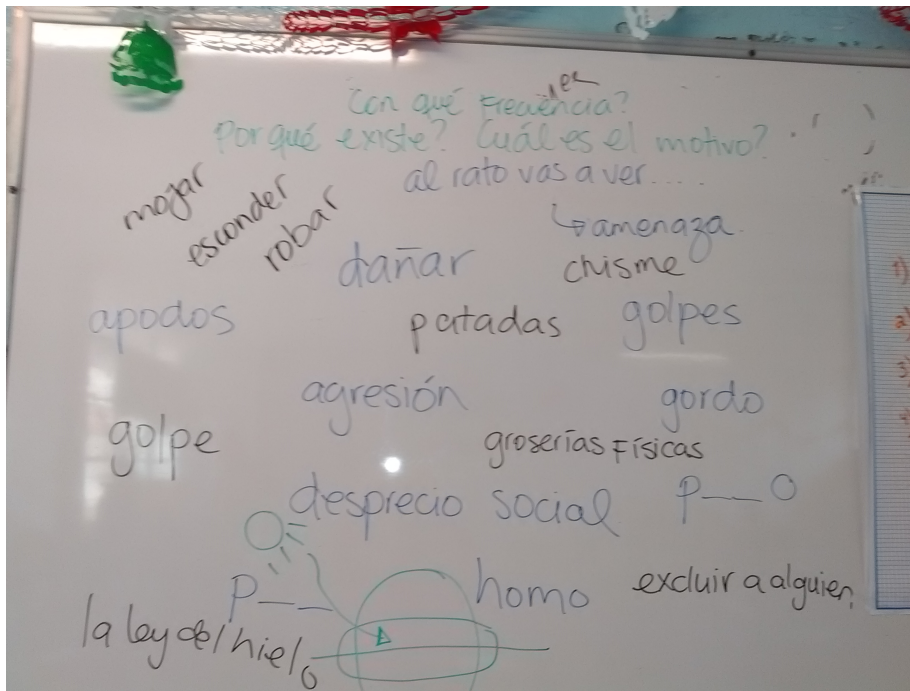 Con qué frecuencia?
Por qué existe? Cuál es el motivo?
al rato vas a ver....
↳ amenaza.
mojar
esconder
robar
dañar
chisme
apodos
patadas
golpes
agresión
gordo
golpe
groserías Físicas
desprecio social
P__O
P__
homo
excluir a alguien
la ley del hielo
1)
2)
3)